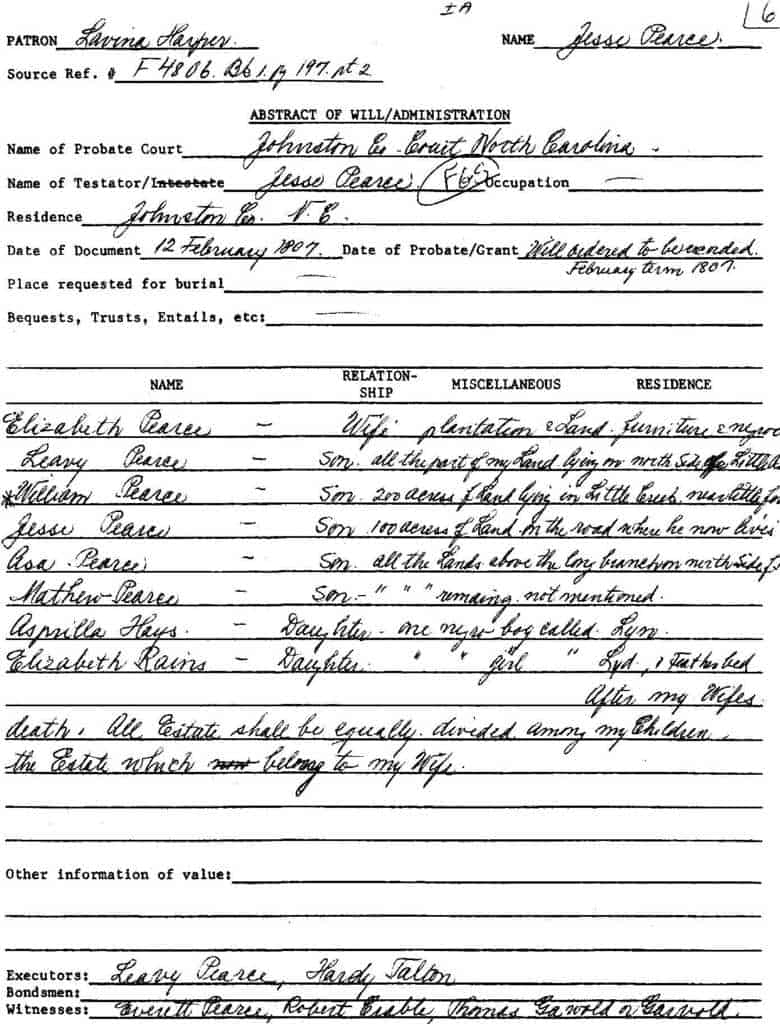 IA 6
PATRON Lavina Harper. NAME Jesse Pearce.
Source Ref. # F 4806. Bk 1. pg 197. pt 2
ABSTRACT OF WILL/ADMINISTRATION
Name of Probate Court Johnston Co. Court North Carolina.
Name of Testator/Intestate Jesse Pearce. Occupation —
Residence Johnston Co. N. C.
Date of Document 12 February 1807. Date of Probate/Grant Will ordered to be recorded.
February term 1807.
Place requested for burial —
Bequests, Trusts, Entails, etc: —
RELATION-
NAME MISCELLANEOUS RESIDENCE
SHIP
Elizabeth Pearce — Wife plantation & Land. furniture & negroe
Leavy Pearce — Son. all the part of my Land lying on north Side of Little
*William Pearce — Son. 200 acres of Land lying in Little Creek, near little
Jesse Pearce — Son 100 acress of Land on the road where he now lives
Asa Pearce — Son. all the Lands above the long branch on north Side of
Mathew Pearce — Son - " " " remaing not mentioned.
Asprilla Hays. — Daughter - one negro boy called Lym.
Elizabeth Rains — Daughter. " " girl " Lyd., & Feather bed
After my Wifes
death, All Estate shall be equally divided among my Children.
the Estate which now belong to my Wife.
Other information of value:
Executors: Leavy Pearce, Hardy Talton
Bondsmen:
Witnesses: Everett Pearce, Robert Crable, Thomas Gawold or Garvold.